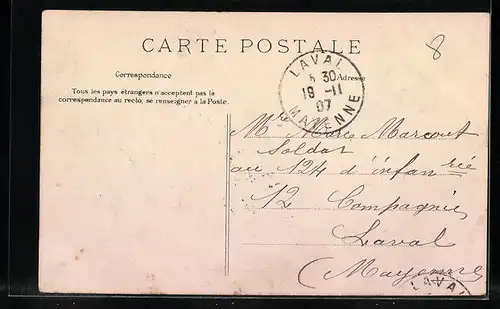 8
CARTE POSTALE
Correspondance
Adresse
Tous les pays étrangers n'acceptent pas la
correspondance au recto, se renseigner à la Poste.
LAVAL
5 30
18 -11
07
MAYENNE
Mr Marie Marcout
Soldat
au 124 d'infanrie
12 Compagnie
Laval
(Mayenne
LAVAL